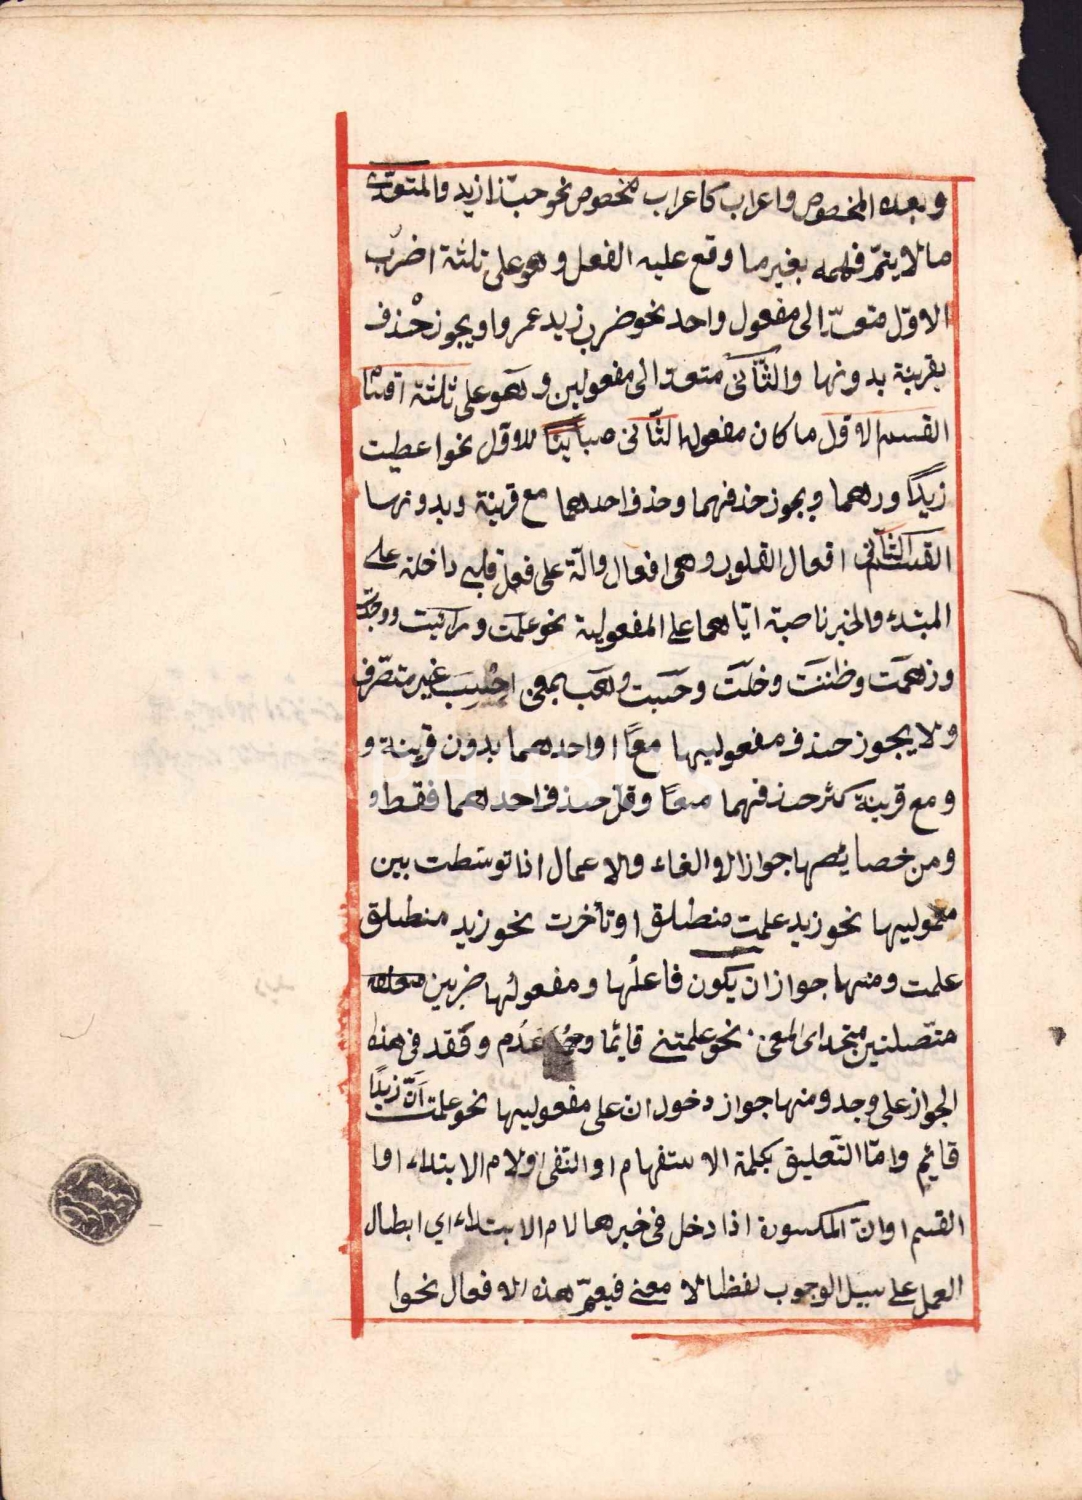 وبعده المخصوص واعراب كاعراب مخصوص نحو حبّذا زيد والمتعدّى
مالا يتمّ فهمه بغير ما وقع عليه الفعل وهو على ثلثة اضرب
الاوّل متعدّ الى مفعول واحد نحو ضرب زيد عمروا ويجوز حذف
بقرينة بدونها والثّانى متعد الى مفعولين وهو على ثلثة اقسا
القسم الاوّل ما كان مفعوله الثّانى مباينًا للاوّل نحو اعطيت
زيدًا درهما ويجوز حذفهما وحذف احدهما مع قرينة وبدونها
القسم الثّانى افعال القلوب وهى افعال دالّة على فعل قلبى داخلة على
المبتدء والخبر ناصبة ايّاهما على المفعولية نحو علمت ورائيت ووجدت
وزعمت وظننت وخلت وحسبت وهب بمعنى احسب غير متصّرف
ولا يجوز حذف مفعوليها معًا او احدهما بدون قرينة و
ومع قرينة كثر حذفهما معًا وقلّ حذف احدهما فقط و
ومن خصايصها جواز الالغاء والاعمال اذا توسّطت بين
معموليها نحو زيد علمت منطلق او تأخرت نحو زيد منطلق
علمت ومنها جواز ان يكون فاعلُها ومفعولُها ضربين
متّصلين متحداى المعنى نحو علمتنى قايمًا وحمل عدم وفقد فى هذه
الجواز على وجد ومنها جواز دخول ان على مفعوليها نحو علمت اَنّ زيدًا
قايم وامّا التّعليق بكلمة الاستفهام او النّفى او لام الابتداء او
القسم او انّ المكسورة اذا دخل فى خبرها لام الابتداء اى ابطال
العمل على سبيل الوجوب لفظا لا معنى فيعمّ هذه الافعال نحوا